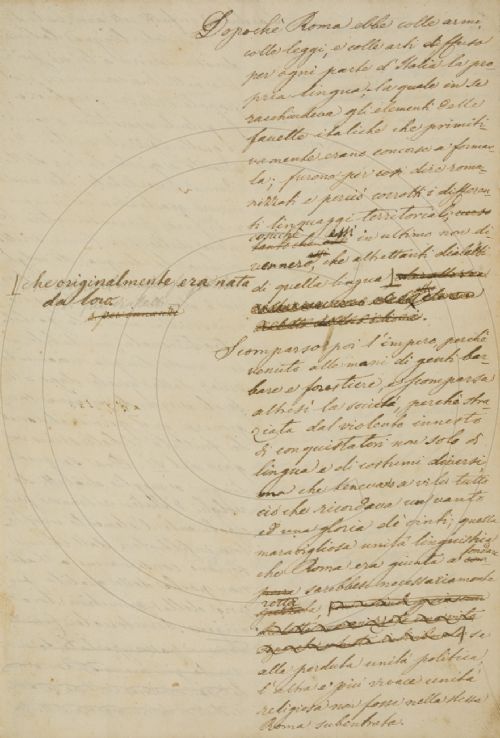 Dopochè Roma ebbe colle armi,
colle leggi, e colle arti diffusa
per ogni parte d'Italia la pro-
pria lingua, la quale in se
racchiudeva gli elementi delle
favelle italiche che primiti-
vamente erano concorse a formar-
la; furono per così dire roma-
nizzati e perciò corrotti i differen-
ti linguaggi territoriali;
cosicchè essi in ultimo non di-
vennero, che altrettanti dialetti
di quella lingua
che originalmente era nata
da loro.
Scomparso poi l'impero, perchè
venuto alle mani di genti bar-
bare e forestiere, e scomparsa
altresì la società, perchè stra-
ziata dal violento innesto
di conquistatori non solo di
lingua e di costumi diversi,
ma che tenevano a vile tutto
ciò che ricordava un vanto
ed una gloria de' vinti; quella
maravigliosa unità linguistica
che Roma era giunta a fondare
sarebbesi necessariamente
rotta se
alla perduta unità politica,
l'altra e più vivace unità
religiosa non fosse nella stessa
Roma subentrata.